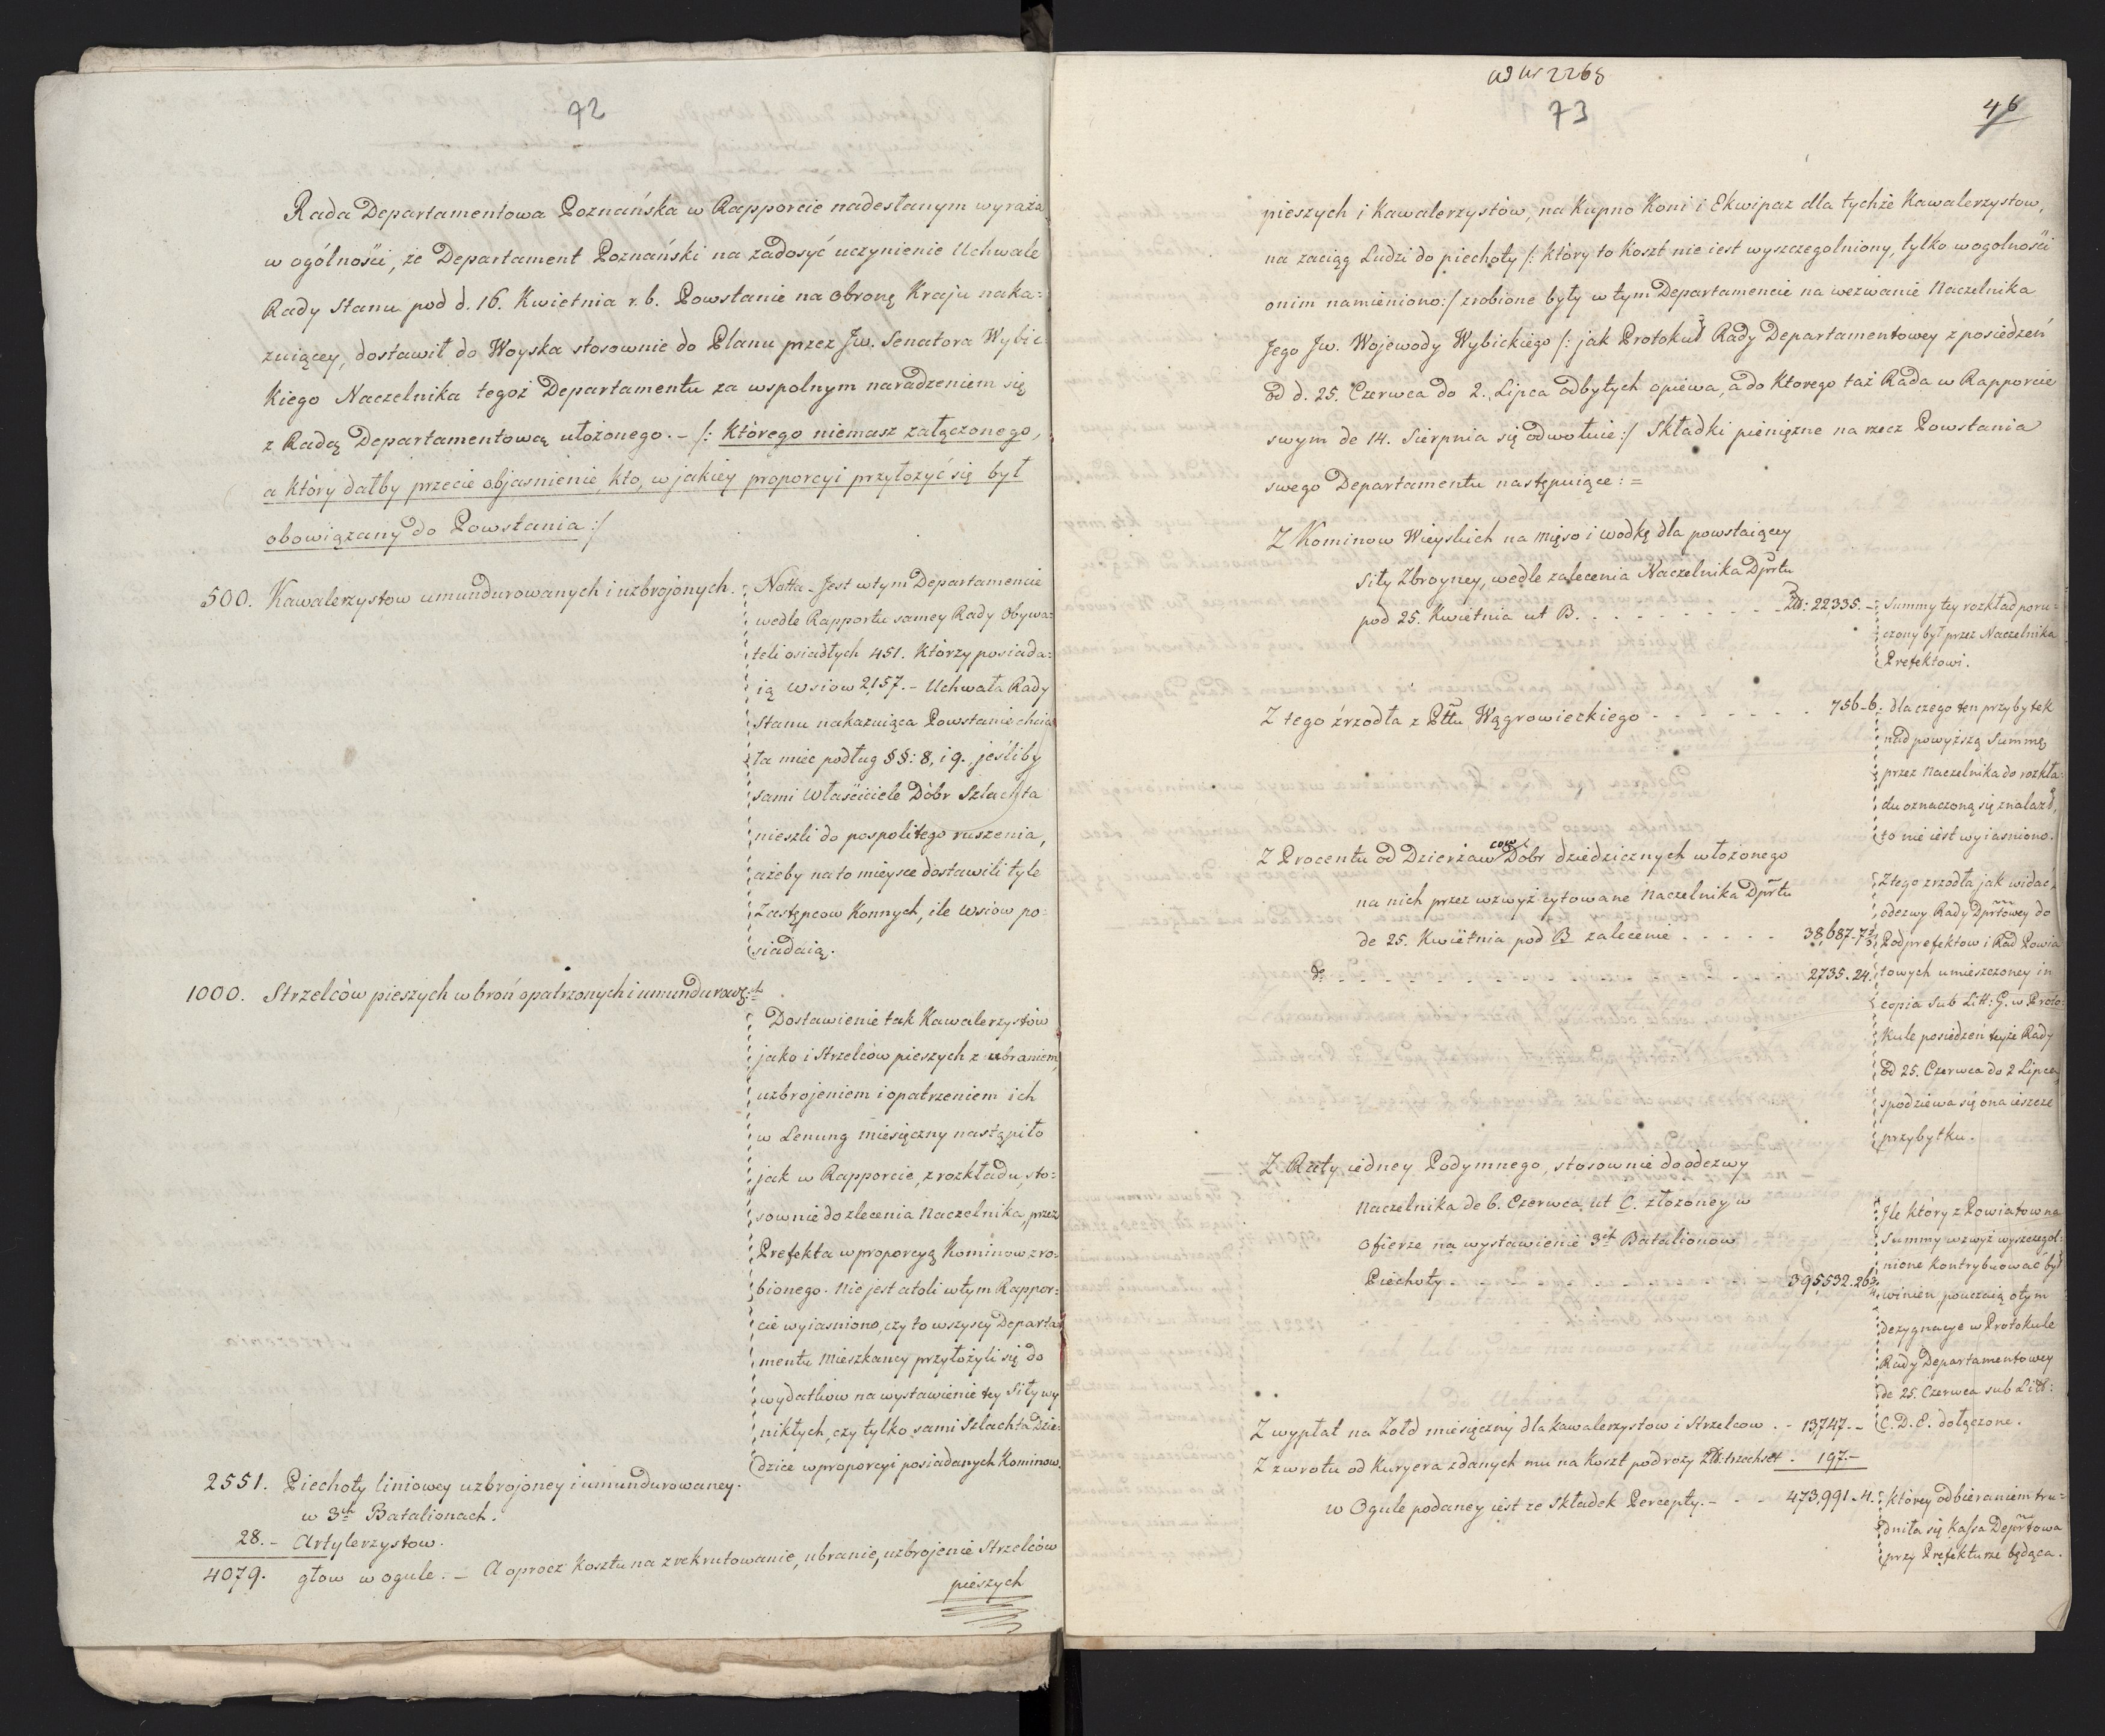 72
Rada Departamentowa Poznańska w Rapporcie nadesłanym wyraża
w ogólności, że Departament Poznański na zadosyć uczynienie Uchwale
Rady Stanu pod d. 16. Kwietnia r. b. Powstanie na obronę Kraju naka=
zuiącey, dostawił do Woyska stosownie do Planu przez Jw. Senatora Wybic
kiego Naczelnika tegoż Departamentu za wspolnym naradzeniem się
z Radą Departamentową ułożonego. – /: Którego niemasz załączonego,
a który dałby przecie objasnienie, kto, w jakiey proporcyi przyłożyć się był
obowiązany do Powstania :/
500. Kawalerzystow umundurowanych i uzbrojonych.
Notta. Jest w tym Departamencie
wedle Rapportu samey Rady Obywa=
teli osiadłych 451. Którzy posiada=
ią wsiow 2157. – Uchwała Rady
Stanu nakazuiąca Powstanie chcia
ła miec podług §§: 8, i 9. jeśliby
sami Właściciele Dóbr Szlachta
nieszli do pospolitego ruszenia,
ażeby na to mieysce dostawili tyle
Zastępcow Konnych, ile wsiow po=
siadaią.
1000. Strzelców pieszych w broń opatrzonych i umundurow:ch
Dostawienie tak Kawalerzystów
jako i Strzelców pieszych z ubraniem,
uzbrojeniem i opatrzeniem ich
w Lenung miesięczny nastąpiło
jak w Rapporcie, z rozkładu, sto=
sownie do zlecenia Naczelnika, przez
Prefekta w proporcyą Kominow zro=
bionego. Nie jest atoli w tym Rappor=
cie wyiasniono, czy to wszyscy Departa
mentu Mieszkancy przyłożyli się do
wydatkow na wystawienie tey Siły wy
nikłych, czy tylko sami Szlachta Dzie=
dzice w proporcyi posiadanych Kominow.
2551. Piechoty liniowey uzbrojoney i umundurowaney.
w 3ch Batalionach.
28. – Artylerzystow.
4079. głow w ogule. – A oprocz Kosztu na zrekrutowanie, ubranie, uzbrojenie Strzelców
pieszych
ad Nr 2268
73
46
pieszych i Kawalerzystów, na Kupno Koni i Ekwipaz dla tychże Kawalerzystow,
na zaciąg Ludzi do piechoty /: który to Koszt nie iest wyszczegolniony, tylko w ogolności
o nim namieniono :/ zrobione były w tym Departamencie na wezwanie Naczelnika
Jego Jw. Wojewody Wybickiego /: jak Protokuł Rady Departamentowey z posiedzeń
od d. 25. Czerwca do 2. Lipca odbytych opiewa, a do Ktorego taż Rada w Rapporcie
swym de 14. Sierpnia się odwołuie :/ Składki pieniężne na rzecz Powstania
swego Departamentu następuiące: =
Z Kominow Wieyskich na mięso i wodkę dla powstaiącey
Siły Zbroyney, wedle zalecenia Naczelnika Dprtu
pod 25. Kwietnia ut B. . . . . . . Zł: 22335. –
Summy tey rozkład poru=
czony był przez Naczelnika
Prefektowi.
Z tego źrzodła z Pttu Wągrowieckiego - - - - - - - 756-6.
dlaczego ten przybytek
nad powyższą Summę
przez Naczelnika do rozkła=
du oznaczoną się znalazł,
to nie iest wyiasniono.
Z Procentu od Dzierżawcow Dobr dziedzicznych włożonego
na nich przez wzwyż cytowane Naczelnika Dprtu
de 25. Kwietnia pod B zalecenie . . . . . 38,687-7⅔
do - - - - - - - - - - - - 2735. 24.
Z tego zrzodła jak widać z
odezwy Rady Dprtowey do
Podprefektow i Rad Powia
towych umieszczoney in
copia sub Litt: G. w Proto=
kule posiedzeń teyże Rady
od 25. Czerwca do 2 Lipca,
spodziewa się ona ieszcze
przybytku.
Z Raty iedney Podymnego, stosownie do odezwy
Naczelnika de 6. Czerwca ut C. złożoney w
Ofierze na wystawienie 3ch Batalionow
Piechoty - - - - - - - - - 395,532. 26¾.
Ile który z Powiatow na
Summy wzwyż wyszczegol=
nione Kontrybuować był
winien pouczaią o tym
dezygnacye w Protokule
Rady Departamentowey
de 25. Czerwca sub Litt:
C. D. E. dołączone.
Z wypłat na Żołd miesięczny dla Kawalerzystow i Strzelcow . - 13747. –
Z zwrotu od Kuryera zdanych mu na Koszt podroży Zł: trzechset . 197. –
w Ogule podaney iest ze Składek Percepty. – - - 473,991. 4.
którey odbieraniem tru=
dniła się Kassa Deprtowa
przy Prefekturze będąca.